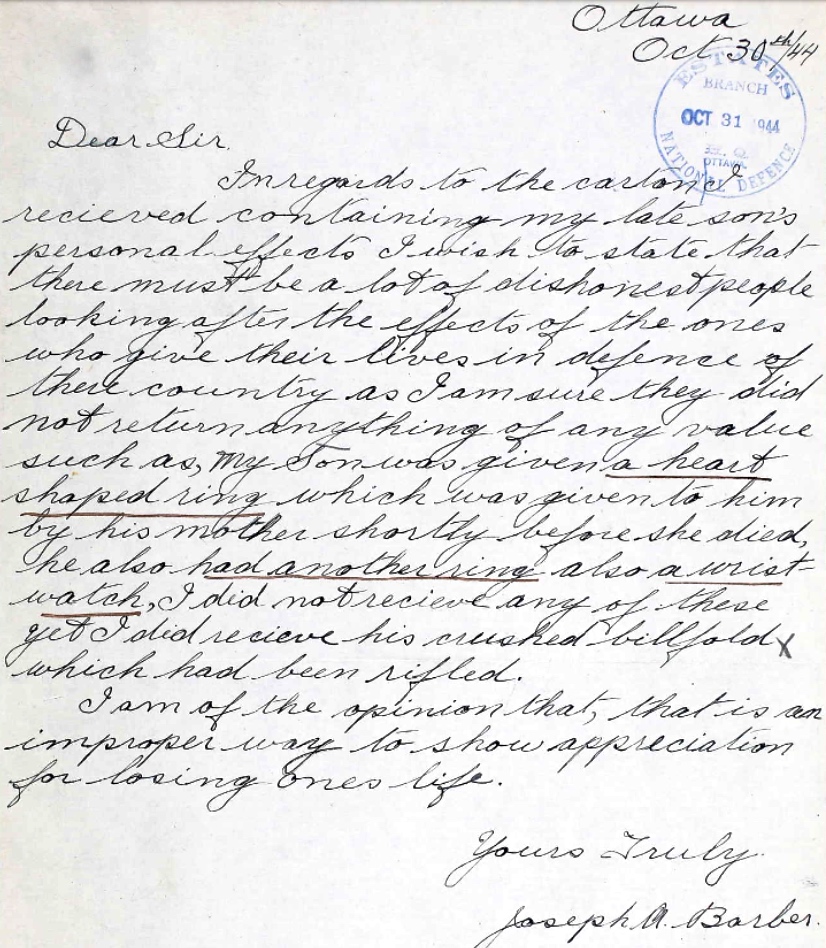 Ottawa
Oct 30th/44
ESTATES
BRANCH
OCT 31 1944
OTTAWA
NATIONAL DEFENCE
Dear Sir.
In regards to the carton I
recieved containing my late son's
personal effects I wish to state that
there must be a lot of dishonest people
looking after the effects of the ones
who give their lives in defence of
there country as I am sure they did
not return anything of any value
such as, my Son was given a heart
shaped ring which was given to him
by his mother shortly before she died,
he also had another ring also a wrist-
watch, I did not recieve any of these
yet I did recieve his crushed billfold x
which had been rifled.
I am of the opinion that, that is an
improper way to show appreciation
for losing ones life.
Yours Truly.
Joseph A. Barber.